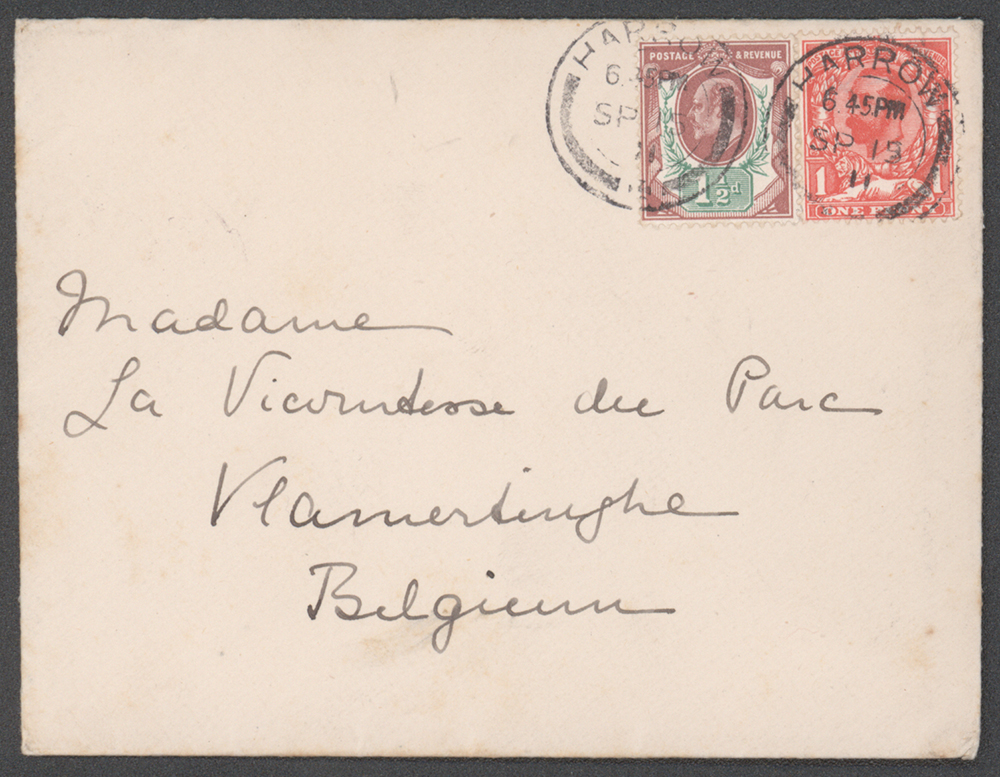 HARROW
6.45PM
SP
11
POSTAGE & REVENUE
1½d
HARROW
6.45PM
SP 19
11
POSTAGE REVENUE
1 1
ONE PENNY
Madame
La Vicomtesse du Parc
Vlamertinghe
Belgium